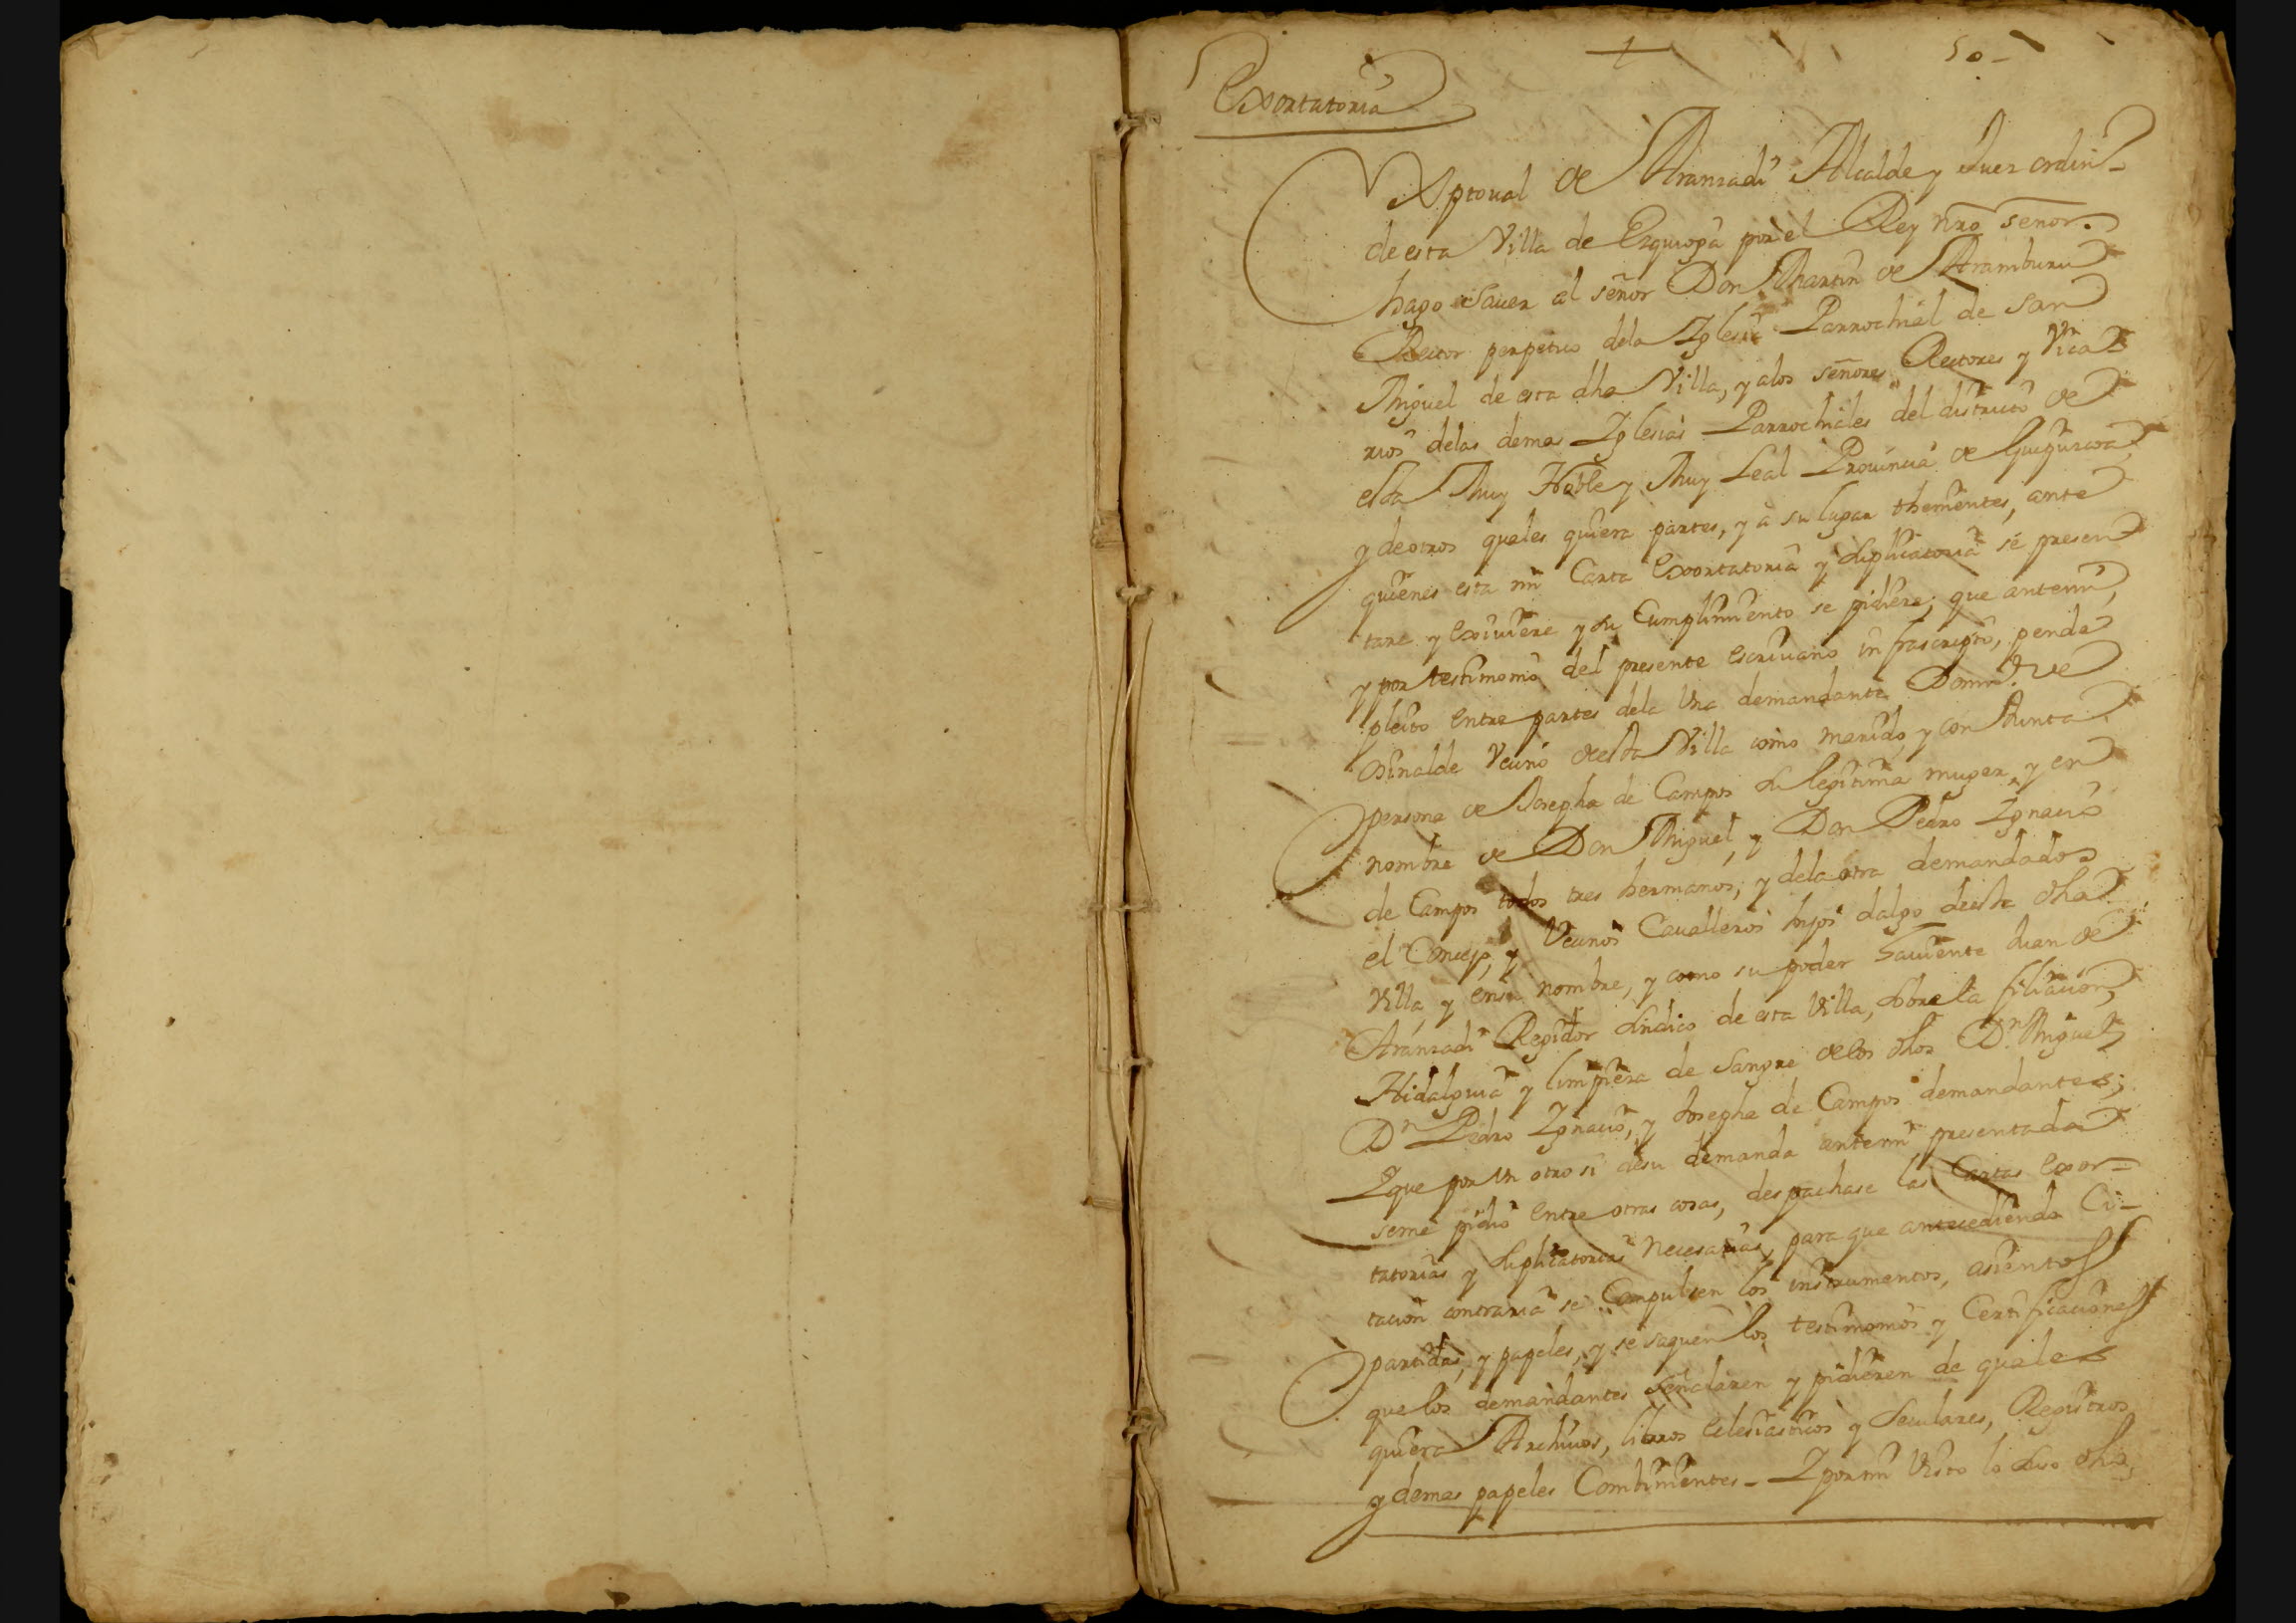 50-
Exortatoria
Xptoual de Aranzadi Alcalde y Juez ordin.
de esta Villa de Ezquioga por el Rey nro señor.
hago Sauer al señor Don Martin de Aramburu
Rector perpetuo dela Iglesia Parrochial de San
Miguel de esta dha Villa, y alos señores Rectores y Vica-
rios delas demas Iglesias Parrochiales del distrito de
esta Muy Noble y Muy Leal Prouincia de Guipuzcoa
y de otros quales quiera partes, y a su lugar thenientes, ante
quienes esta mi Carta Exortatoria y suplicatoria se presen
tare y Exiuiere y su Cumplimiento se pidiere; que antemi,
y por testimonio del presente escriuano infrascripto, pende
pleito entre partes dela Una demandante Dom.º de
Osinalde Vecino de esta Villa como marido, y con Junta
persona de Josepha de Campos su legitima muger, y en
nombre de Don Miguel, y Don Pedro Ignacio
de Campos todos tres hermanos, y dela otra demandados
el Concejo, y Vecinos Caualleros hijos dalgo de esta dha
Villa, y en su nombre, y como su poder hauiente Juan de
Aranzadi Regidor Sindico de esta Villa, sobre la filiacion,
Hidalguia y limpieza de Sangre de los dhos Dn Miguel,
Dn Pedro Ignacio, y Josepha de Campos demandantes;
Y que por Un otro si de su demanda antemi presentada
seme pidio entre otras cosas, despachase las Cartas Exor-
tatorias y suplicatorias necesarias, para que antecediendo Ci-
tacion contraria se Compulsen los instrumentos, asientos
partidas, y papeles, y se saquen los testimonios y Certificaciones
que los demandantes señalaren y pidieren de quales
quiera Archiuos, libros eclesiasticos y Seculares, Registros
y demas papeles Combenientes - Y por mi Visto lo suso dho,